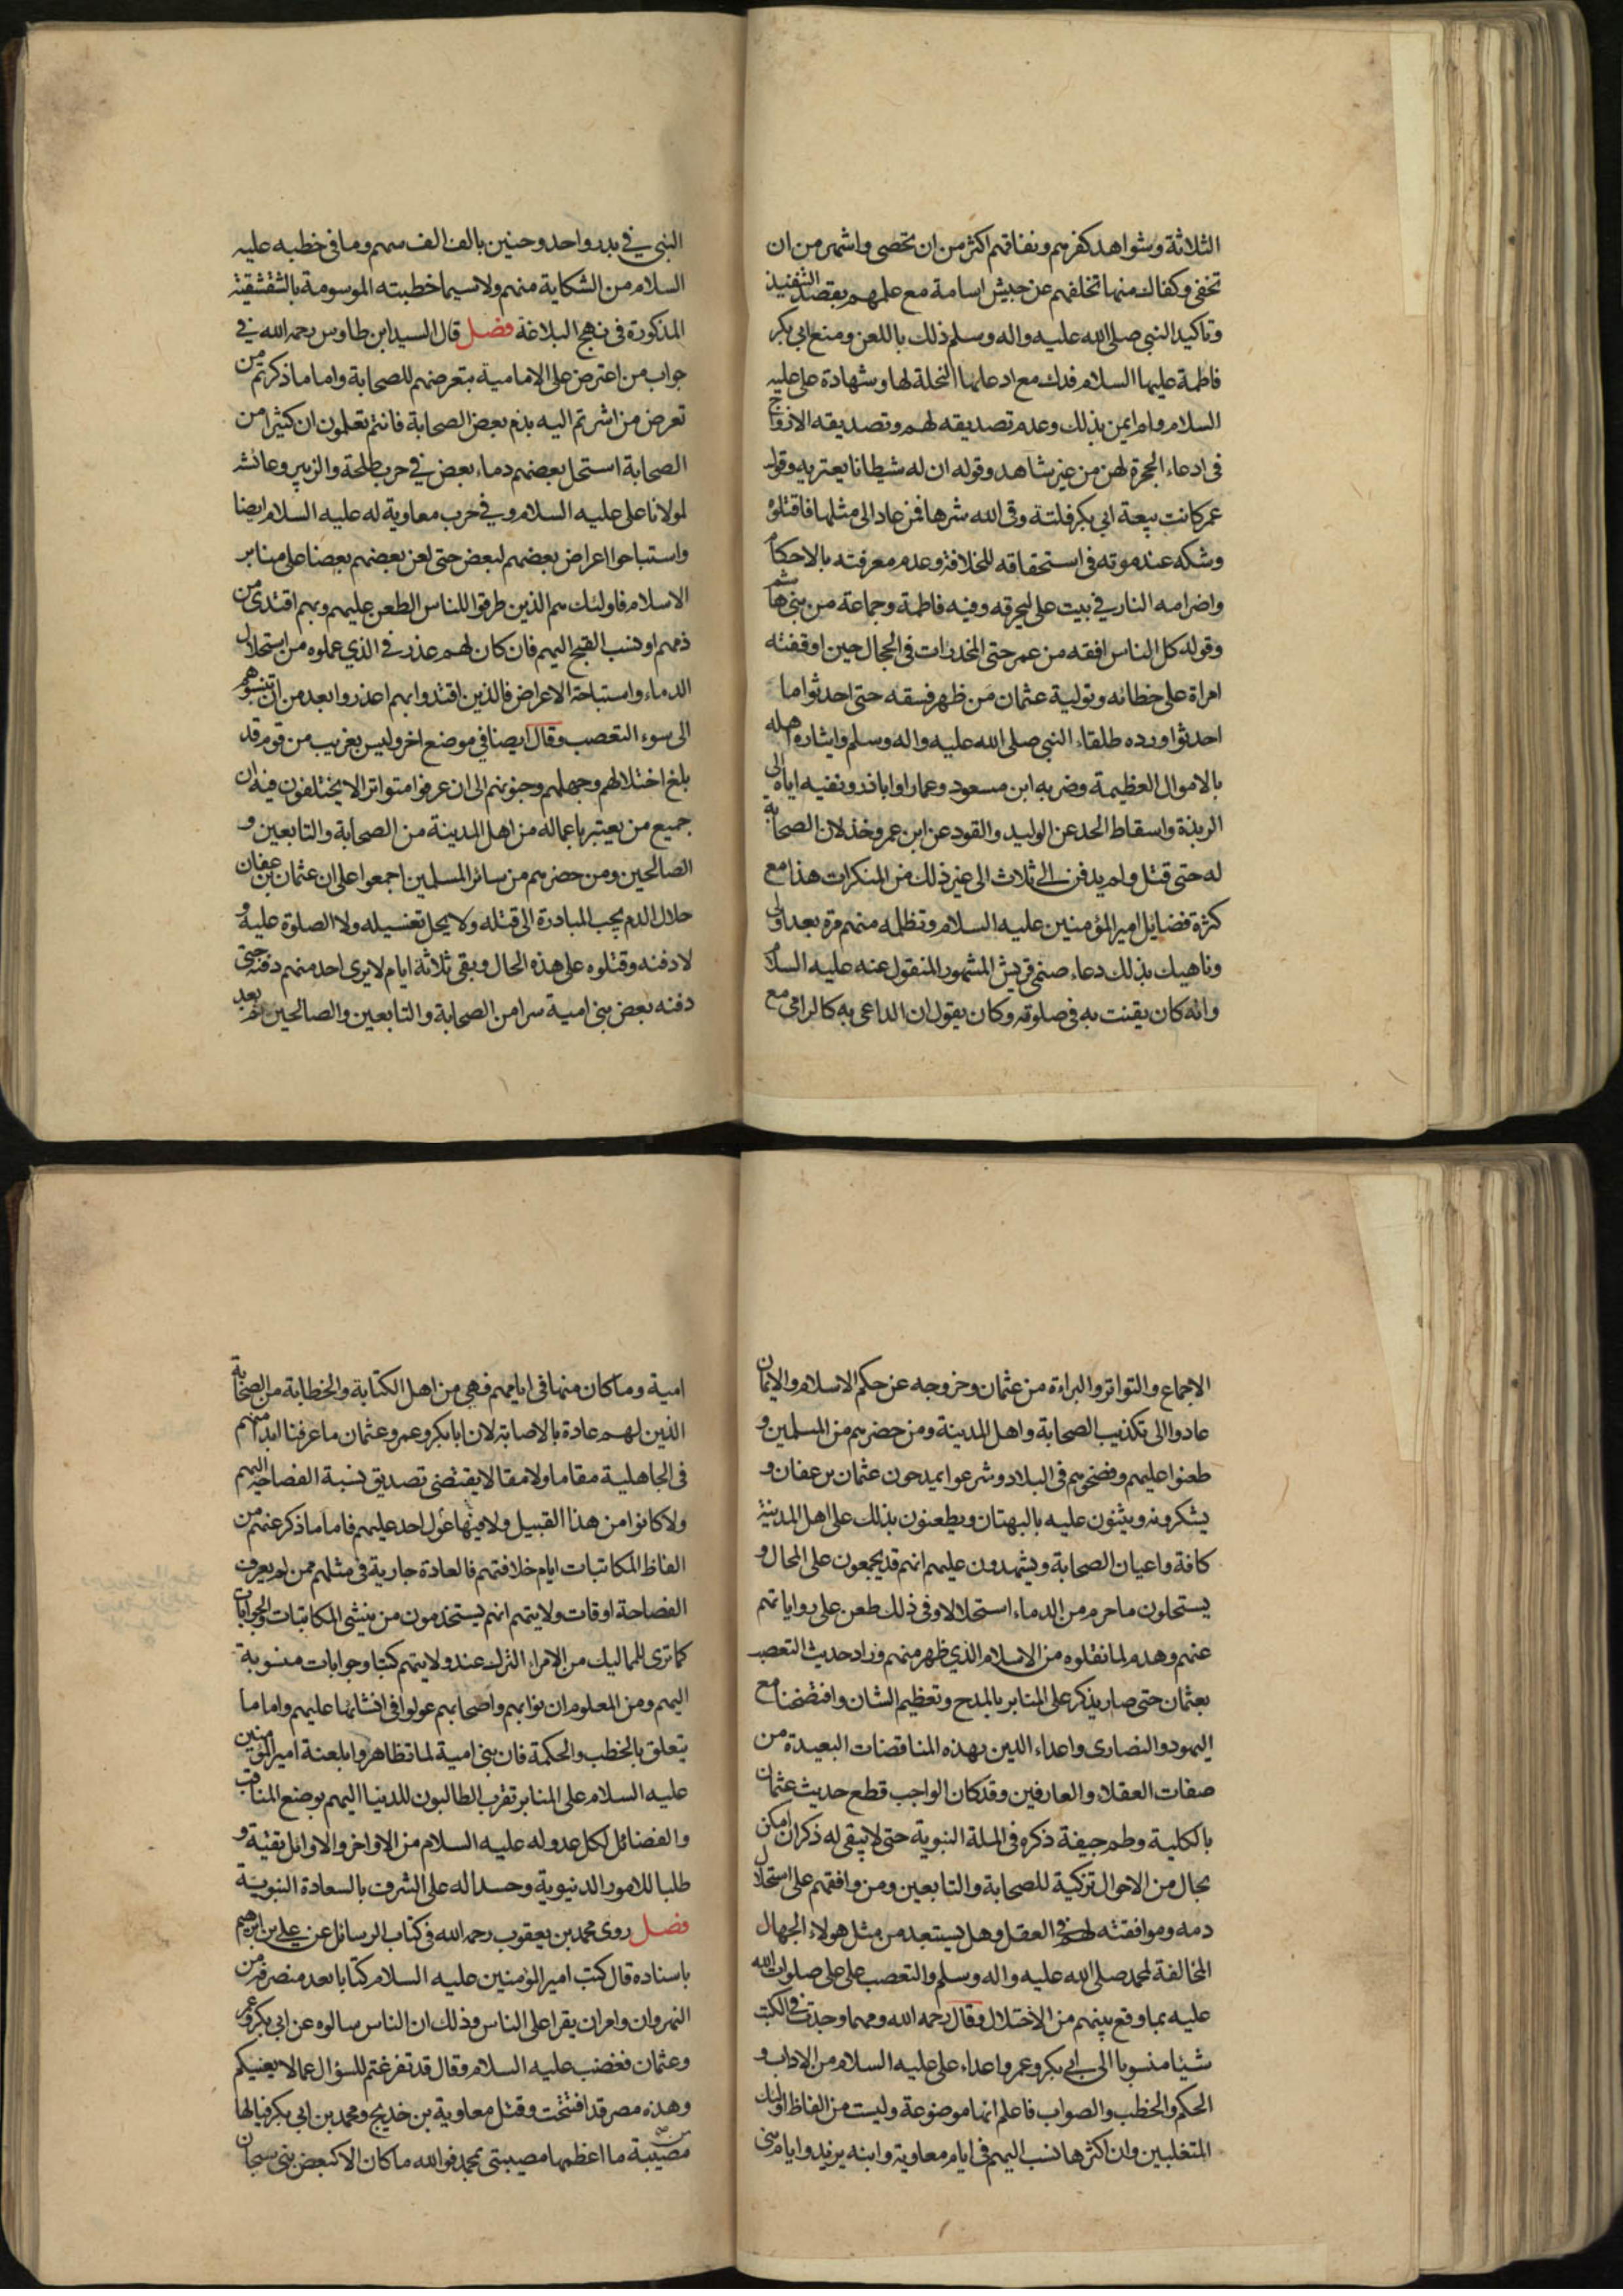 الثلاثة وشواهد كفرهم ونفاقهم اكثر من ان تحصى واشهر من ان
تخفى وكفاك منها تخلفهم عن جيش اسامة مع علمهم بقصد التنفيذ
وتاكيد النبي صلى الله عليه واله وسلم ذلك باللعن ومنع ابي بكر
فاطمة عليها السلام فدك مع ادعائها النحلة لها وشهادة علي عليه
السلام وام ايمن بذلك وعدم تصديقه لهم وتصديقه الازواج
في ادعاء الحجرة لهن من غير شاهد وقوله ان له شيطانا يعتريه وقول
عمر كانت بيعة ابي بكر فلتة وقى الله شرها فمن عاد الى مثلها فاقتلوه
وشكه عند موته في استحقاقه للخلافة وعدم معرفته بالاحكام
واضرامه النار في بيت علي ليحرقه وفيه فاطمة وجماعة من بني هاشم
وقوله كل الناس افقه من عمر حتى المخدرات في الحجال حين اوقفته
امراة على خطائه وتولية عثمان من ظهر فسقه حتى احدثوا ما
احدثوا ورده طلقاء النبي صلى الله عليه واله وسلم وايثاره اهله
بالاموال العظيمة وضربه ابن مسعود وعمارا واباذر ونفيه اياه الى
الربذة واسقاط الحد عن الوليد والقود عن ابن عمر وخذلان الصحابة
له حتى قتل ولم يدفن الى ثلاث الى غير ذلك من المنكرات هذا مع
كثرة فضايل امير المؤمنين عليه السلام وتظلمه منهم مرة بعد اولى
وناهيك بذلك دعاء صنمي قريش المشهور المنقول عنه عليه السلام
وانه كان يقنت به في صلوته وكان يقول ان الداعي به كالرامي مع
النبي في بدر واحد وحنين بالف الف سهم وما في خطبه عليه
السلام من الشكاية منهم ولا سيما خطبته الموسومة بالشقشقية
المذكورة في نهج البلاغة فصل قال السيد ابن طاوس رحمه الله في
جواب من اعترض على الامامية بتعرضهم للصحابة واما ما ذكرتم من
تعرض من اشرتم اليه بذم بعض الصحابة فانتم تعلمون ان كثيرا من
الصحابة استحل بعضهم دماء بعض في حرب طلحة والزبير وعائشه
لمولانا علي عليه السلام وفي حرب معاوية له عليه السلام ايضا
واستباحوا اعراض بعضهم لبعض حتى لعن بعضهم بعضا على منابر
الاسلام فاولئك هم الذين طرقوا للناس الطعن عليهم وبهم اقتدى من
ذمهم او نسب القبيح اليهم فان كان لهم عذر في الذي عملوه من استحلال
الدماء واستباحة الاعراض فالذين اقتدوا بهم اعذر وابعد من ان تنسبوهم
الى سوء التعصب وقال ايضا في موضع اخر وليس بغريب من قوم قد
بلغ اختلالهم وجهلهم وجنونهم الى ان عرفوا متواترا لا يختلفون فيه ان
جميع من يعتبر باعماله من اهل المدينة من الصحابة والتابعين و
الصالحين ومن حضرهم من سائر المسلمين اجمعوا على ان عثمان بن عفان
حلال الدم يجب المبادرة الى قتله ولا يحل تغسيله ولا الصلوة عليه و
لا دفنه وقتلوه على هذه الحال وبقي ثلاثة ايام لا يرى احد منهم دفنه حتى
دفنه بعض بني امية سرا من الصحابة والتابعين والصالحين ثم بعد
الاجماع والتواتر والبراءة من عثمان وخروجه عن حكم الاسلام والايمان
عادوا الى تكذيب الصحابة واهل المدينة ومن حضرهم من المسلمين و
طعنوا عليهم وفضحوهم في البلاد وشرعوا يمدحون عثمان بن عفان و
يشكرونه ويثنون عليه بالبهتان ويطعنون بذلك على اهل المدينة
كافة واعيان الصحابة ويشهدون عليهم انهم قد يجمعون على المحال و
يستحلون ما حرم من الدماء استحلالا وفي ذلك طعن على رواياتهم
عنهم وهدم لما نقلوه من الاسلام الذي ظهر منهم وزاد حديث التعصب
بعثمان حتى صار يذكر على المنابر بالمدح وتعظيم الشان وافتضحنا مع
اليهود والنصارى واعداء الدين بهذه المناقضات البعيدة من
صفات العقلاء والعارفين وقد كان الواجب قطع حديث عثمان
بالكلية وطم جيفة ذكره في الملة النبوية حتى لا يبقى له ذكر ان امكن
بحال من الاحوال تزكية للصحابة والتابعين ومن وافقهم على استحلال
دمه وموافقته لهم في العقل وهل يستبعد من مثل هولاء الجهال
المخالفة لمحمد صلى الله عليه واله وسلم والتعصب على علي صلوات الله
عليه بما وقع بينهم من الاختلال وقال رحمه الله ومهما وجدت في الكتب
شيئا منسوبا الى ابي بكر وعمر واعداء علي عليه السلام من الاداب و
الحكم والخطب والصواب فاعلم انها موضوعة وليست من الفاظ اولئك
المتغلبين وان اكثرها نسب اليهم في ايام معاوية وابنه يزيد وايام بني
امية وما كان منها في ايامهم فهي من اهل الكتابة والخطابة من الصحابة
الذين لهم عادة بالاصابة لان ابا بكر وعمر وعثمان ما عرفنا ابدا منهم
في الجاهلية مقاما ولا مقالا يقتضي تصديق نسبة الفصاحة اليهم
ولا كانوا من هذا القبيل ولا فيها عول احد عليهم فاما ما ذكر عنهم من
الفاظ المكاتبات ايام خلافتهم فالعادة جارية في مثلهم ممن لم يعرف
الفصاحة اوقات ولايتهم انهم يستخدمون من ينشي المكاتبات والجوابات
كما ترى للمماليك من الامراء الترك عند ولايتهم كتبا وجوابات منسوبة
اليهم ومن المعلوم ان نوابهم واصحابهم عولوا في انشائها عليهم واما ما
يتعلق بالخطب والحكمة فان بني امية لما تظاهروا بلعنة امير المؤمنين
عليه السلام على المنابر تقرب الطالبون للدنيا اليهم بوضع المناقب
والفضائل لكل عدو له عليه السلام من الاواخر والاوائل تقية و
طلبا للامور الدنيوية وحسدا له على الشرف بالسعادة النبوية
فصل روى محمد بن يعقوب رحمه الله في كتاب الرسائل عن علي بن ابرهيم
باسناده قال كتب امير المؤمنين عليه السلام كتابا بعد منصرفه من
النهروان وامر ان يقرا على الناس وذلك ان الناس سالوه عن ابي بكر وعمر
وعثمان فغضب عليه السلام وقال قد تفرغتم للسؤال عما لا يعنيكم
وهذه مصر قد افتتحت وقتل معاوية بن خديج ومحمد بن ابي بكر فيالها
مصيبة ما اعظمها مصيبتي بمحمد فوالله ما كان الا كبعض بني سبحان